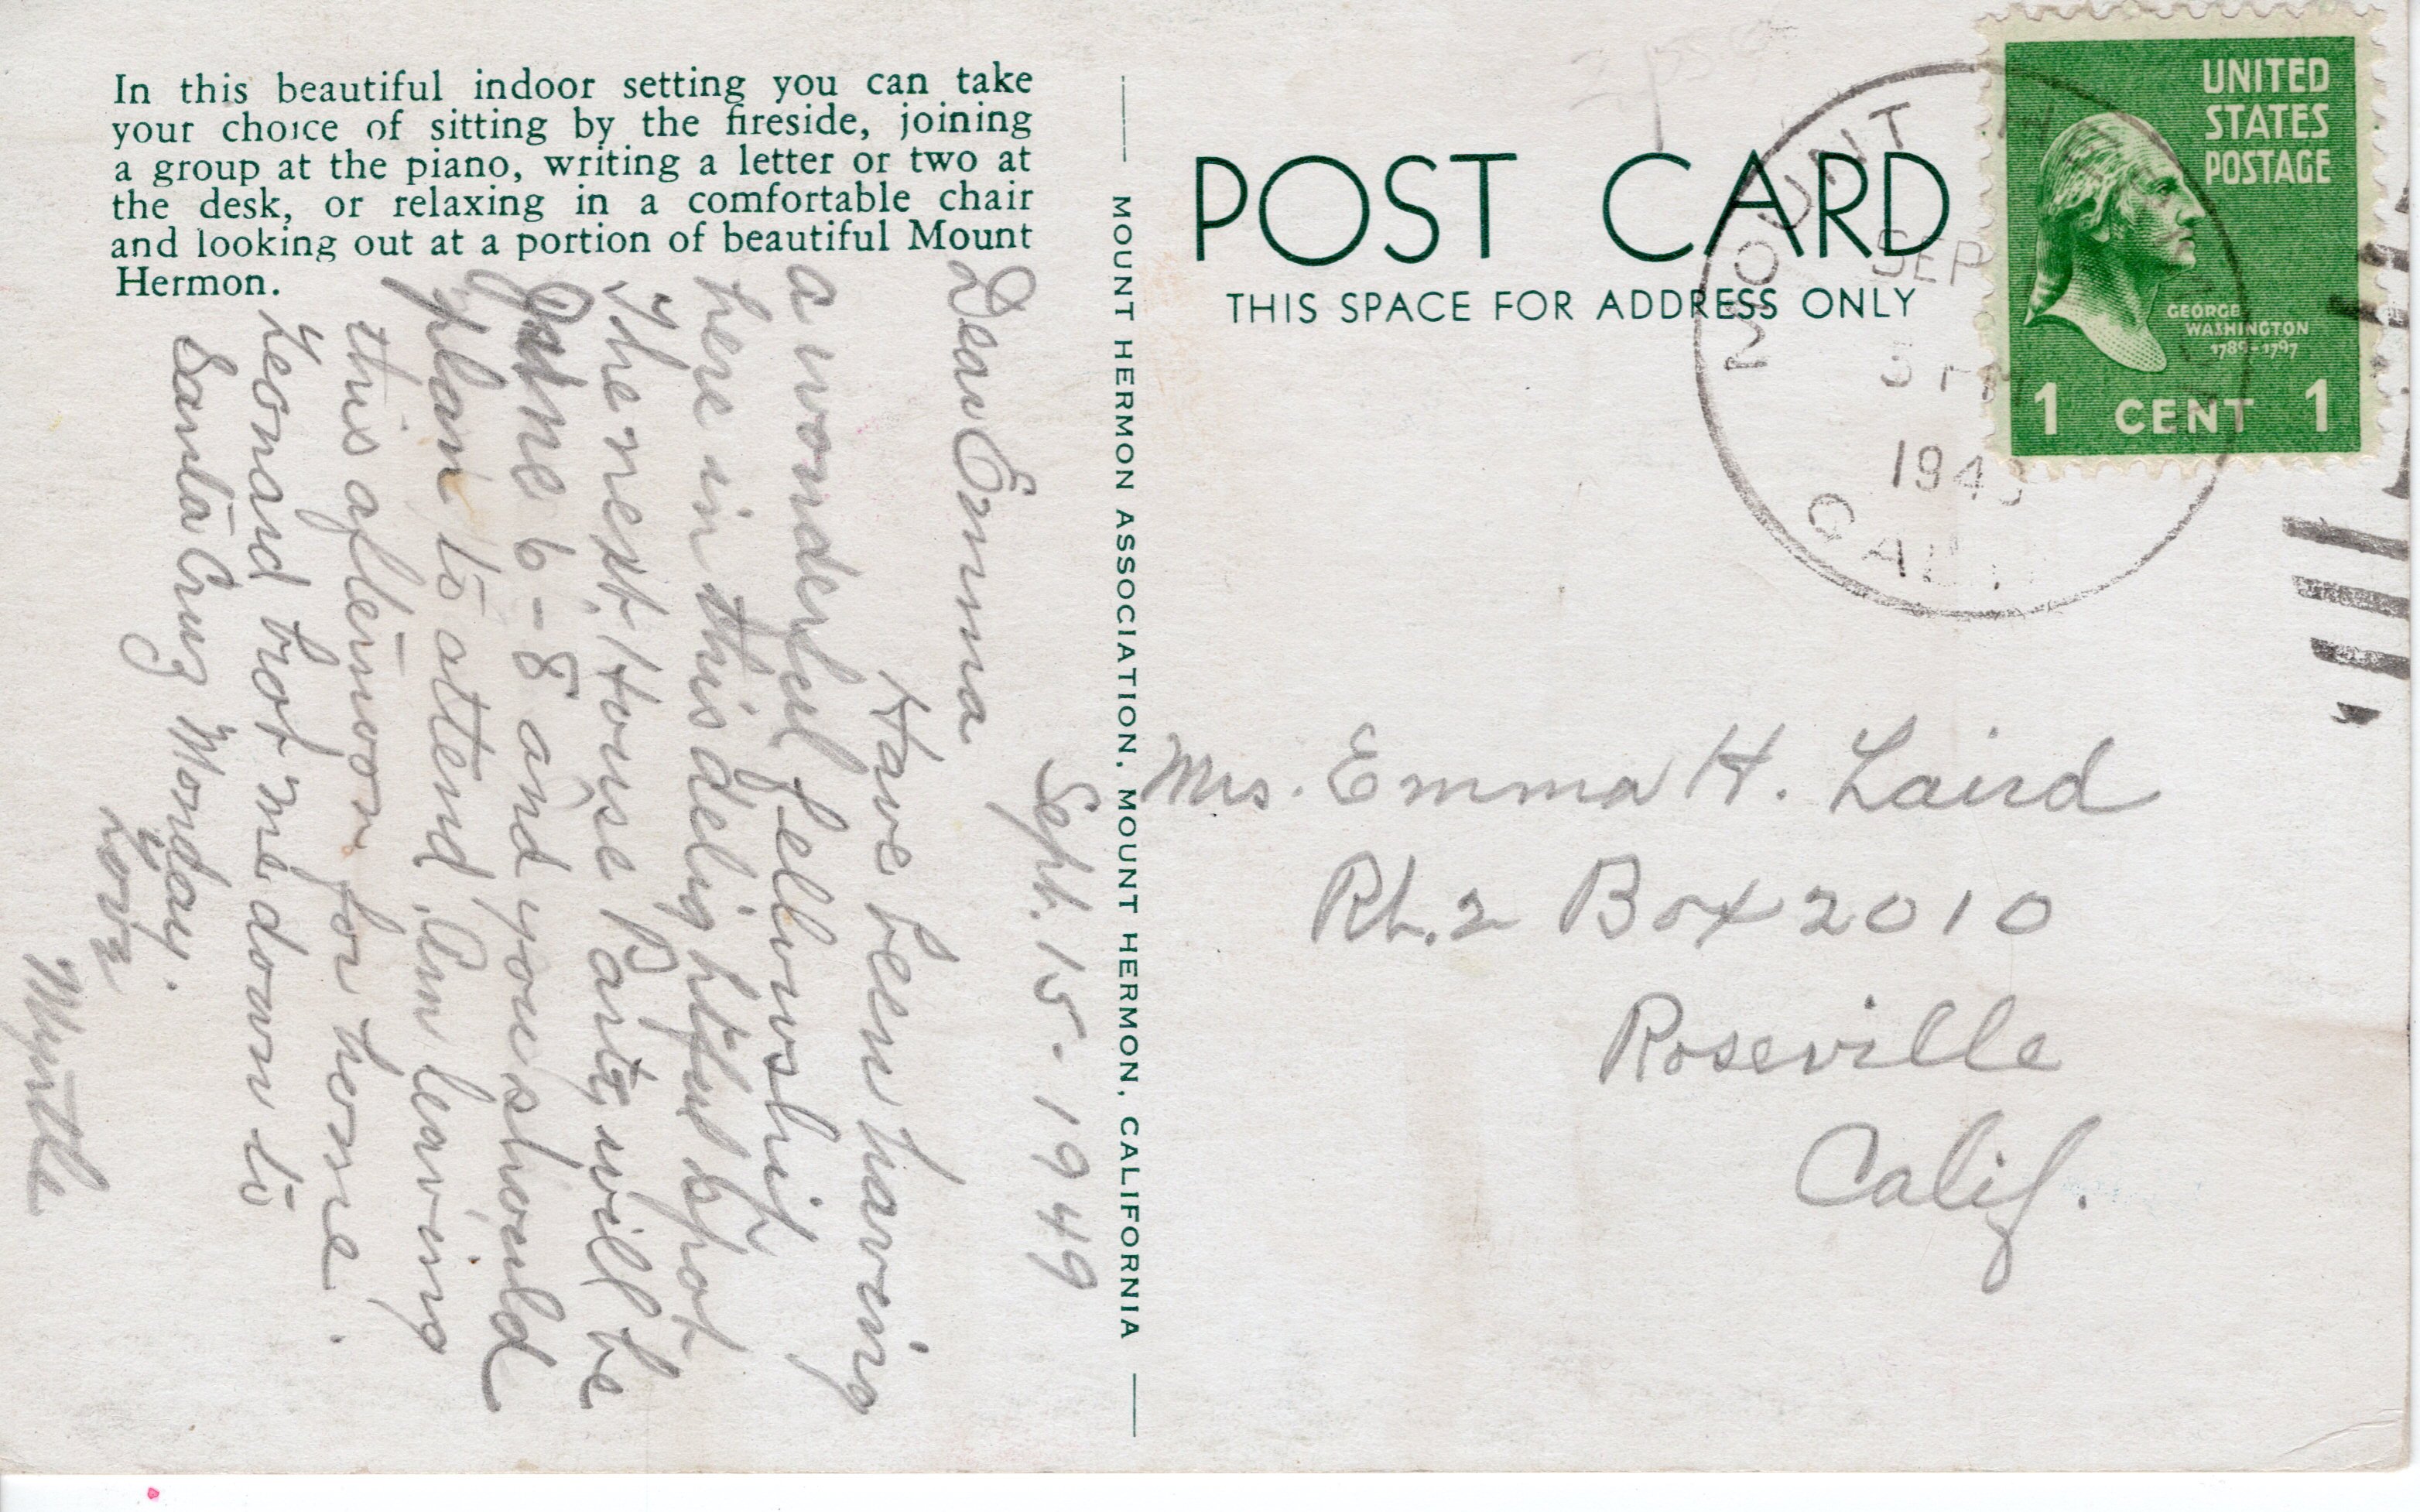 In this beautiful indoor setting you can take
your choice of sitting by the fireside, joining
a group at the piano, writing a letter or two at
the desk, or relaxing in a comfortable chair
and looking out at a portion of beautiful Mount
Hermon.
Sept. 15 - 1949
Dear Emma
Have been having
a wonderful fellowship
here in this delightful spot
The next House Party will be
June 6-8 and you should
plan to attend. Am leaving
this afternoon for home.
Leonard brot me down to
Santa Cruz Monday.
Love
Myrtle
MOUNT HERMON ASSOCIATION, MOUNT HERMON, CALIFORNIA
POST CARD
THIS SPACE FOR ADDRESS ONLY
MOUNT
SEP
194
CALIF
UNITED
STATES
POSTAGE
GEORGE
WASHINGTON
1789-1797
1 CENT 1
Mrs. Emma H. Laird
Rt. 2 Box 2010
Roseville
Calif.